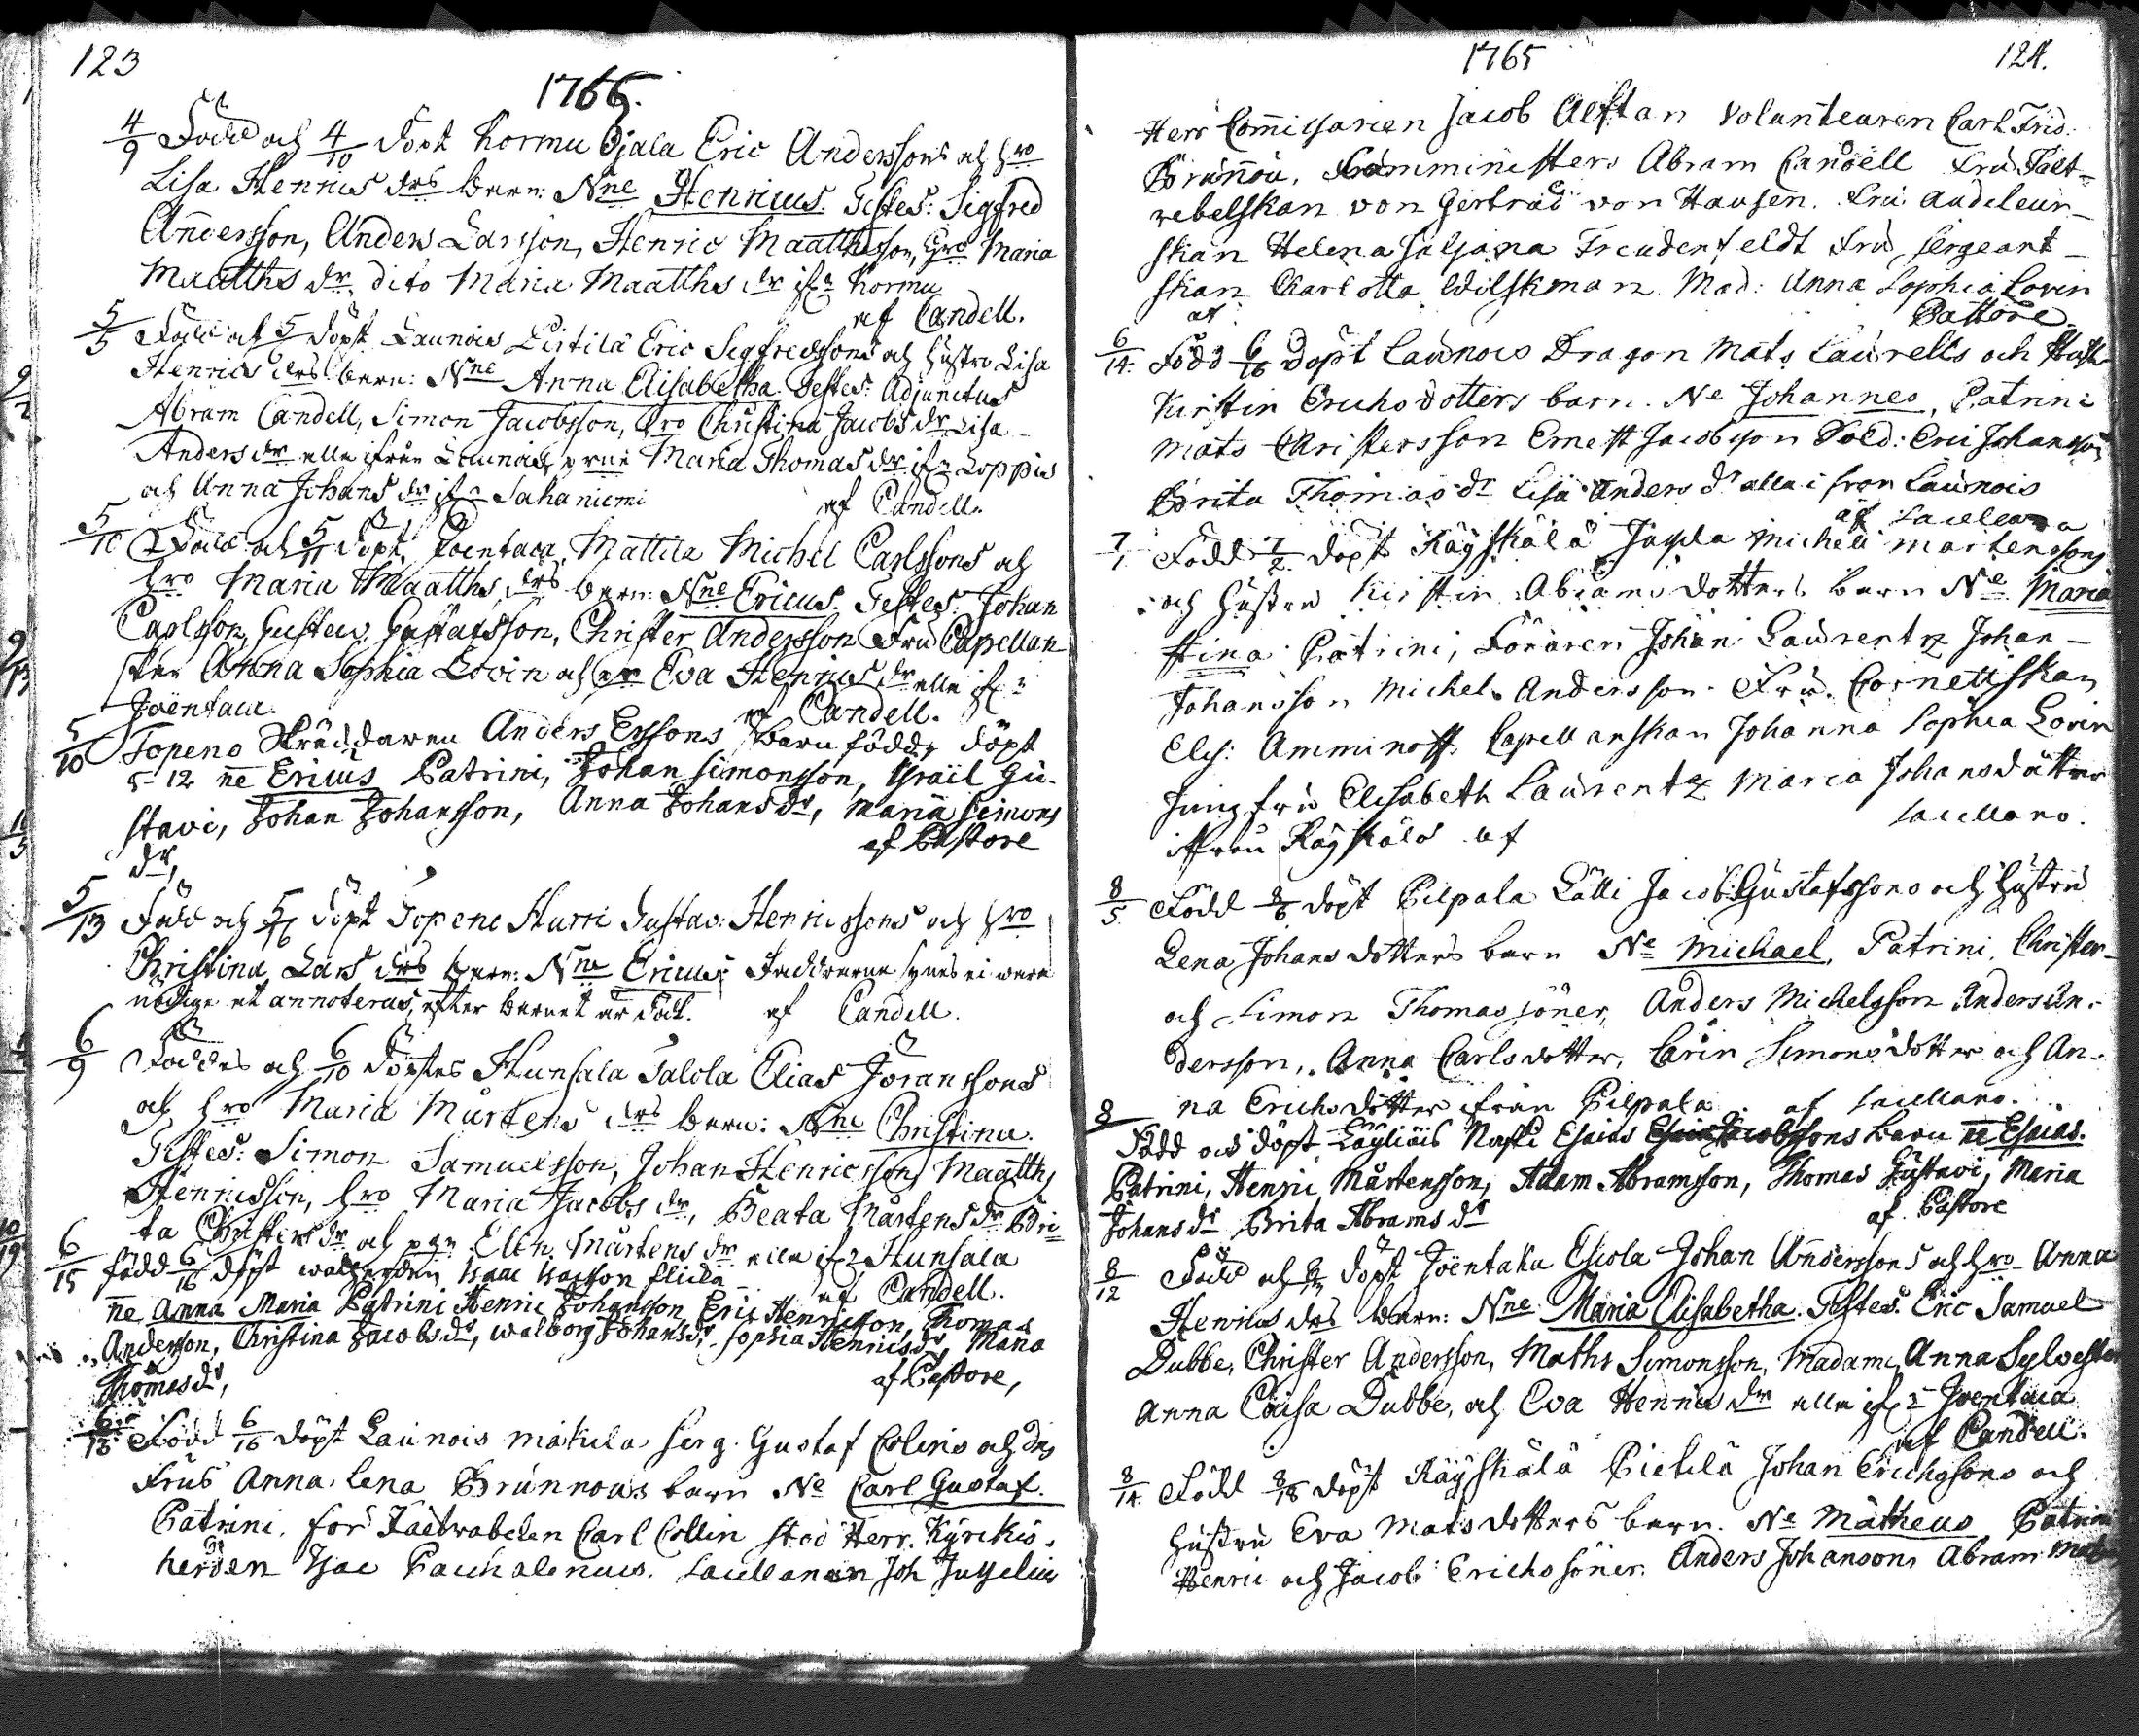 123
1765.
4/9 Född och 4/10 döpt Kormu Ojala Eric Anderssons och hro
Lisa Henrics drs barn: Nne Henricus. Testes: Sigfred
Andersson, Anders Larsson, Henric Maatthsson, hro Maria
Maatths dr, dito Maria Maatths dr ifr Kormu
af Candell.
5/5 Född och 5 döpt Launois Eric Sigfredssons och hustro Lisa
Henrics drs barn: Nne Anna Elisabetha. Testes: Adjunctus
Abram Candell, Simon Jacobsson, hro Christina Jacobs dr Lisa
Anders dr alla ifrån Launois, Maria Thomas dr ifr Loppis
och Anna Johans dr ifr Sahaniemi
af Candell.
5/10 Född och 5/11 döpt Joentaca Mattila Michel Carlssons och
hro Maria Maatths drs barn: Nne Ericus. Testes: Johan
Carlsson, Gustav Gustafsson, Christer Andersson Fru Capellan
skan Anna Sophia Lovin och Eva Henrics dr alla ifr
Joentaca.
af Candell.
5/10 Topeno Skräddaren Anders Erssons barn födde, döpt
5-12 ne Ericus Patrini, Johan Simonsson, Israil Gu-
stavi, Johan Johansson, Anna Johans dr, Maria Simons
dr,
af Pastore
5/13 Född och döpt Topeno Hurri Gustav: Henricssons och hro
Christina Lars drs barn: Nne Ericus Faddrarne synes ei wara
nödige at annoteras, efter barnet är dödt. af Candell.
6/9 Föddes och 6/10 döptes Hunsala Talola Elias Jöranssons
och hro Maria Mårtens drs barn: Nne Christina.
Testes: Simon Samuelsson, Johan Henricsson, Maatths
Henricsson, hro Maria Jacobs dr, Beata Mårtens dr Bri-
ta Christers dr och pgn Elin Mårtens dr alla ifr Hunsala
af Candell.
6/15 född 6/16 döpt Isaac Isacsson flicka
ne Anna Maria Patrini Henric Johansson, Eric Henricsson, Thomas
Andersson, Christina Jacobs dr, Walborg Johans dr, Sophia Henrics dr, Maria
Thomas dr,
af Pastore,
6/13 Född 6/16 döpt Launois Mäkilä Serg. Gustaf Colins och
Frus Anna Lena Brunnous barn Ne Carl Gustaf.
Patrini. för Fältwäbelen Carl Collin stod Herr. Kyrkio-
herden Isac Pachalenius. Sacellanen Joh
1765
124.
Herr Commissarien Jacob Alftan Volunteuren Carl Frid.
Brunnou, Comministers Abram Candell Fru Fält-
webelskan von Gertrud von Hausen. Fru auditeur-
skan Helena Juljana Freudenfeldt Fru Sergeant-
skan Charlotta Wilskman. Mad: Anna Sophia Lovin
af Pastore.
6/14. Född 6/16 döpt Launois Dragon Mats Laurells och Hustr
Kirstin Erichsdotters barn. Ne Johannes, Patrini
Mats Christersson Ernest Jacobsson Sold: Eric Johansson
Brita Thomas dr Lisa Anders dr alla ifrån Launois
af Sacellano
7/1 Född 7/2 döpt Räyskälä Michell Martenssons
och hustru Kirstin Abrams dotters barn Ne Maria
Stina Patrini, Föraren Johan Laurentz Johan-
Johansson Michel Andersson. Fru. Cornettskan
Elis: Amminoff. Capellanskan Johanna Sophia Lovin
Jungfru Elisabeth Laurentz Maria Johansdotter
ifrån Räyskälä af Sacellano.
8/5. Född 8/6 döpt Pilpala Lätti Jacob Gustafssons och Hustru
Lena Johans dotters barn Ne Michael, Patrini, Christer
och Simon Thomassöner, Anders Michelsson Anders An-
dersson, Anna Carlsdotter, Carin Simonsdotter och An-
na Erichsdotter ifrån Pilpala af Sacellano.
8 Född och döpt Läyliäis Esaias Jacobssons barn ne Esaias.
Patrini, Henric Mårtensson, Adam Abramsson, Thomas Gustavi, Maria
Johans dr Brita Abrams dr
af Pastore
8/12 Född och döpt Joentaka Eskola Johan Anderssons och hro Anna
Henrics drs barn: Nne Maria Elisabetha. Testes: Eric Samuel
Dubbe, Christer Andersson, Maths Simonsson, Madame Anna Sylvester
Anna Caisa Dubbe, och Eva Henrics dr alla ifr Joentaca
af Candell.
8/14. Född 8/18 döpt Räyskälä Pietilä Johan Erichssons och
Hustru Eva Matsdotters barn. Ne Mattheus, Patrini
Henric och Jacob Erichssöner. Anders Johansson, Abram